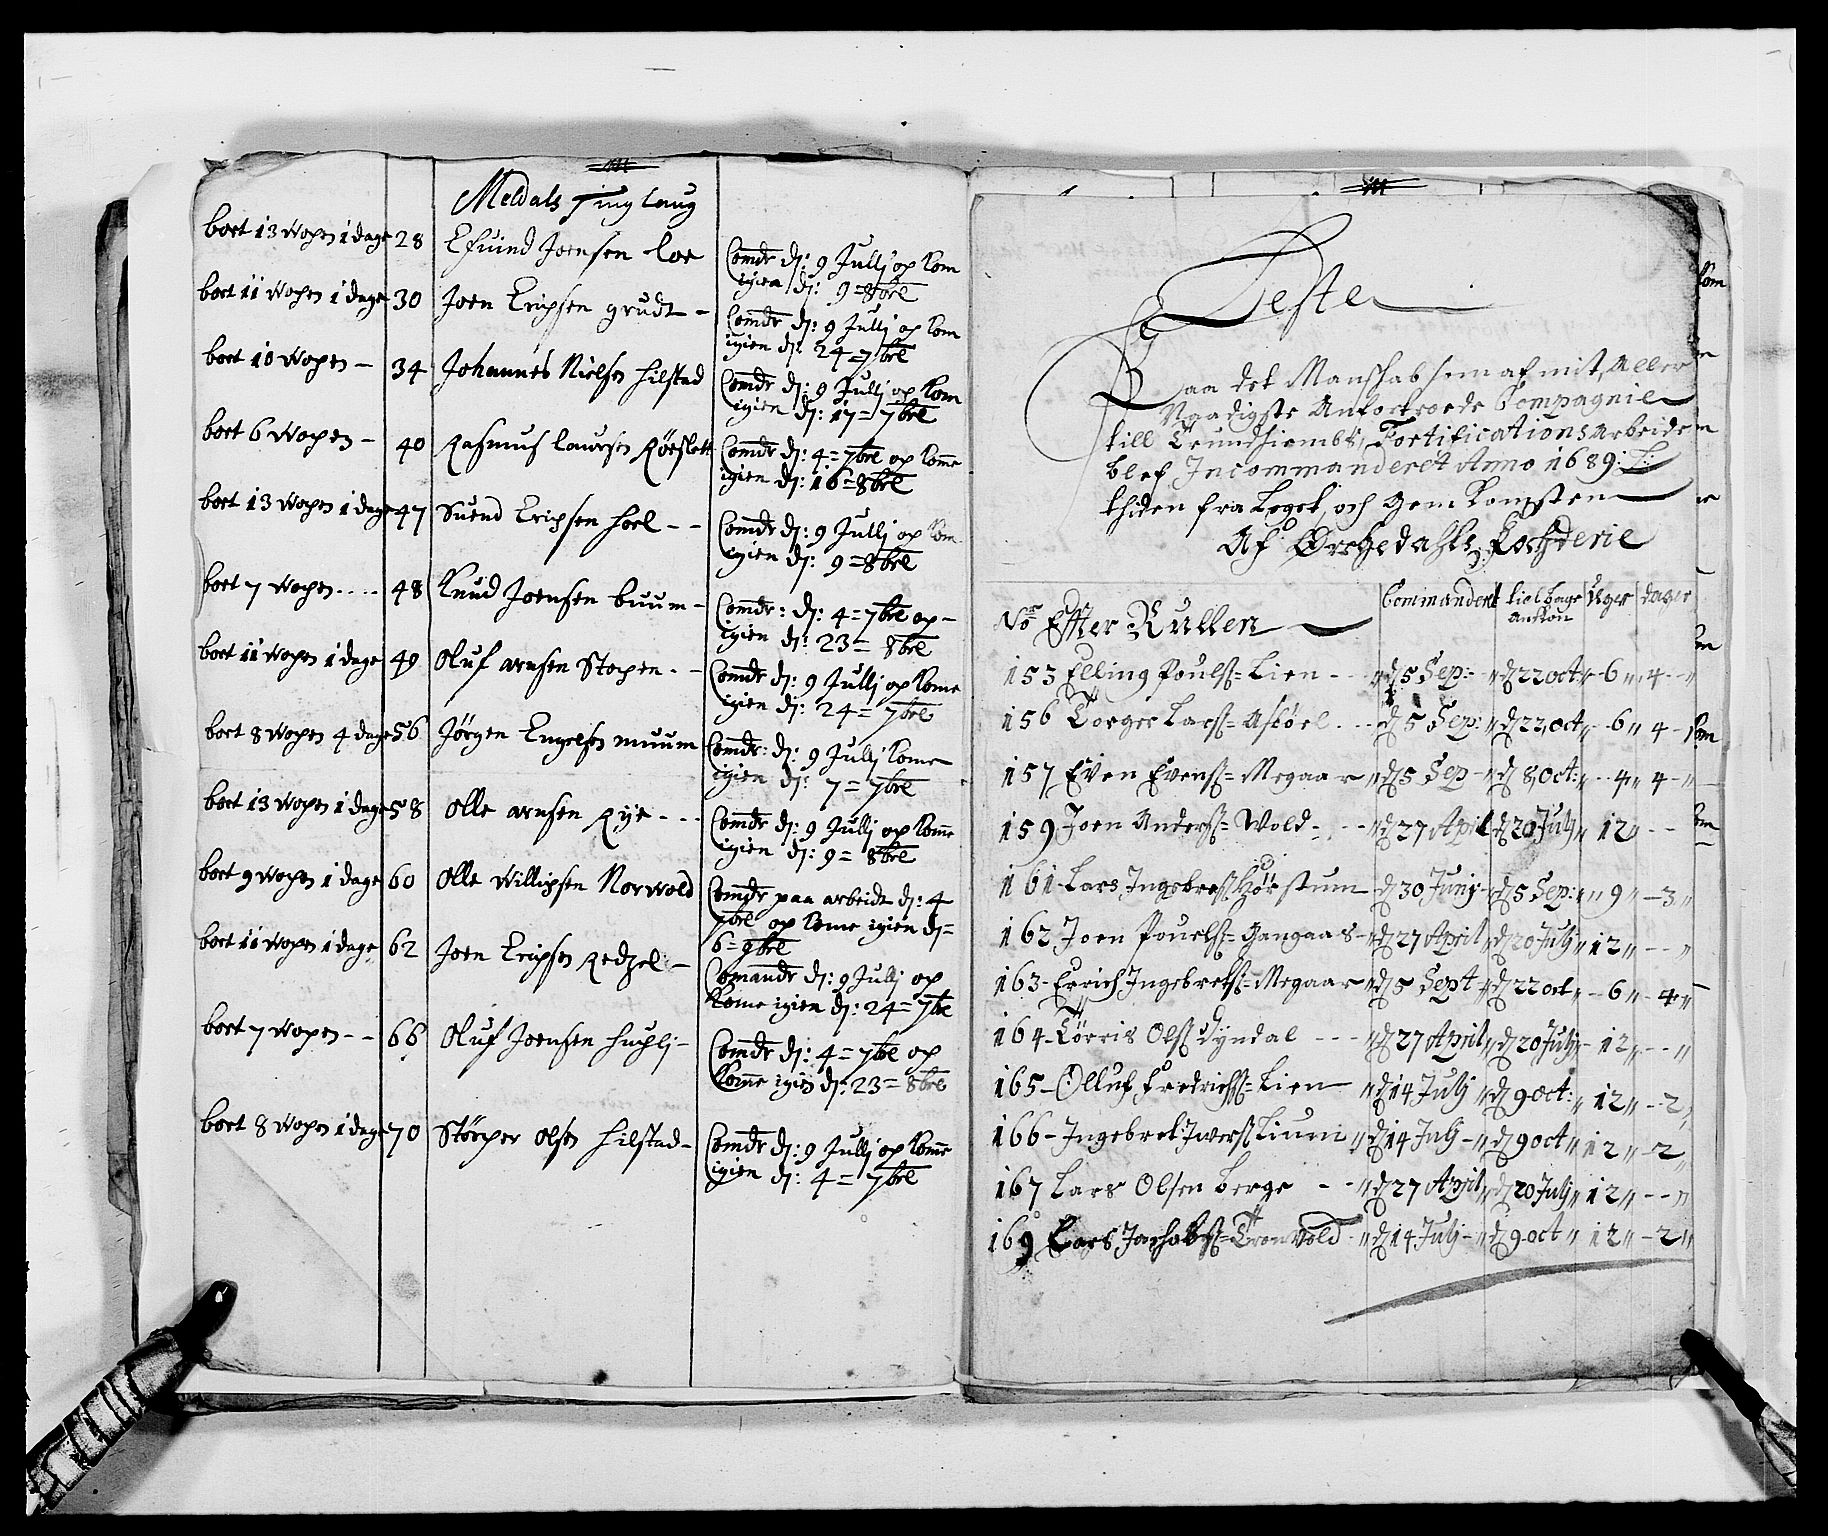 Meldals Ting laug
boet 13 Wogen 1 dage 28 Efuind Joensen loe Comdr dj: 9 Julij og kom
igien dj: 9 = 8brl
boet 11 Wogen 1 dage 30 Joen Erichsen grudt - Comdr dj: 9 Julij og kom
igien dj: 24 = 7brl
boet 10 Wogen - 34 Johannes Nielsen hilstad Comdr dj: 9 Julij og kom
igien dj: 17 = 7brl
boet 6 Wogen - 40 Rasmus Laursen Röeslett Comdr dj: 4 = 7brl og komme
igien dj: 16 = 8brl
boet 13 Wogen 1 dage 47 Suend Erichsen hoel - - Comdr dj: 9 Julij og kom
igien dj: 9 = 8brl
boet 7 Wogen - - - - 48 Knud Joensen buum - Comdr: dj: 4 = 7brl og -
igien dj: 23 = 8brl
boet 11 Wogen 1 dage 49 Oluf arnsen Stochen - - Comdr dj: 9 Julij og kome
igien dj: 24 = 7brl
boet 8 Wogen 4 dage 56 Jörgen Engelsen muum Comdr: dj: 9 Julij kome
igien dj: 7 = 7brl
boet 13 Wogen 1 dage 58 Olle arnsen Rije - - - Comdr dj: 9 Julij og komme
igien dj: 9 = 8brl
boet 9 Wogen 1 dage 60 Olle Willichsen Norwold Comdr paa arbeidt dj: 4
7brl og kome igien dj =
6 = 9brl
boet 11 Wogen 1 dage 62 Joen Erichsen Redzel - Comandr dj: 9 Julij og
kome igien dj: 24 = 7br
boet 7 Wogen - - 66 Oluf Joensen huchlj - Comdr dj: 4 = 7brl og
komme igien dj: 23 = 8brl
boet 8 Wogen 1 dage 70 Störcher Olsen hilstad - Comdr dj: 9 Julij og komme
igien dj: 4 = 7brl
Leste
Paa det Mandskab som af mit, Aller
Naadigste Anfortroede Compagnie
till Trundhiembs, Fortifications Arbeide
blef Incommanderet Anno 1689:
thiden fra Leget, och Hiem Komsten
Af Örchedahls Fogderie
No Effter Rullen Commanderet tilbage ankom Uger dager
153 Elling Pouls = Lien - - dj 5 Sep: dj 22 oct 6 4
156 Torger Lars = Asböel - - dj 5 Sep: dj 22 oct 6 4
157 Even Evens = Megaar dj 5 Sep dj 8 Oct: 4 4
159 Joen Anders = Wold - - dj 27 April dj 20 Julj 12 - -
161 Lars Ingebrets Hörstum dj 30 Junj dj 5 Sep: 9 - 3
162 Joen Pouels = Gangaas dj 27 April dj 20 Julj 12 - -
163 - Errich Ingebrets = Megaar dj 5 Sept dj 22 oct 6 - 4
164 - Törris Ols dyndal - - - dj 27 April dj 20 Julj - 12 - -
165 - Olluf Fredrichs = Lien dj 14 Julj dj 9 oct: 12 - 2
166 - Ingebret Iwers Lium dj 14 Julj - dj 9 oct 12 - 2
167 Lars Olsen berge - - dj 27 April dj 20 Julj 12 - -
169 Lars Jachobs = Tronvold - dj 14 Julj - dj 9 oct 12 - 2